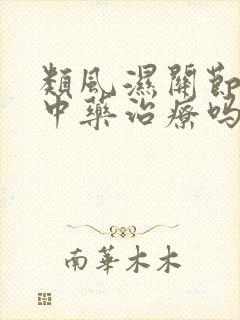 類風濕關節
中藥治療嗎
南華木木